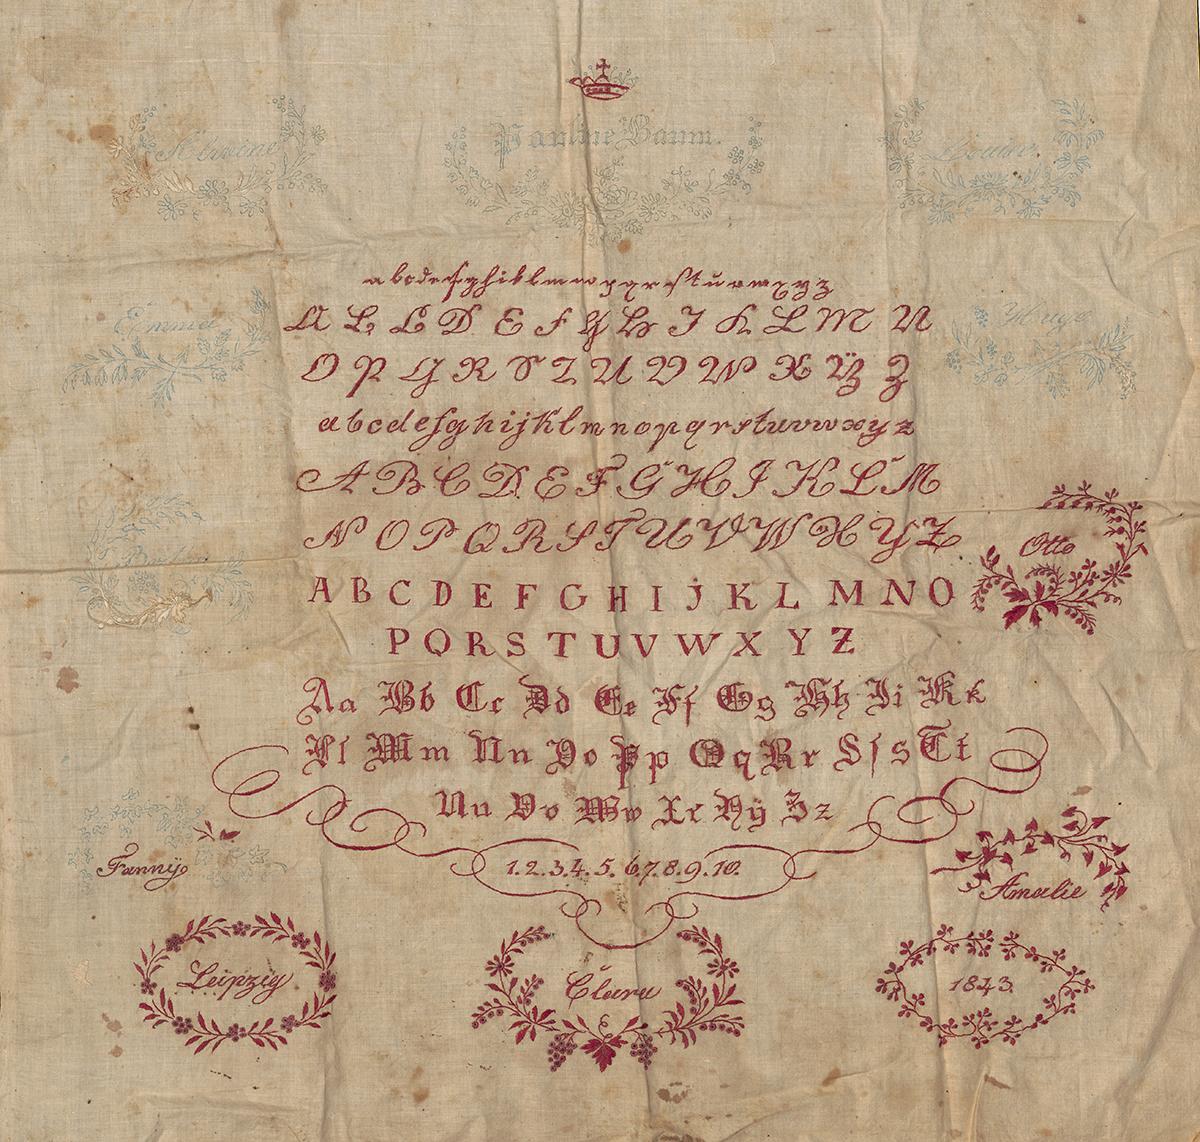 Alwine
Pauline Baum.
Louise.
abcdefghiklmnopqrſstuvwxyz
A B C D E F G H I K L M N
O P Q R S T U V W X Ÿ Z
abcdefghijklmnopqrstuvwxyz
Emma
A B C D E F G H I K L M
N O P Q R S T U V W X Y Z
Otto
A B C D E F G H I J K L M N O
P Q R S T U V W X Y Z
Aa Bb Cc Dd Ee Ff Gg Hh Ii Kk
Ll Mm Nn Oo Pp Qq Rr Sſs Tt
Uu Vv Ww Xx Yÿ Zz
1.2.3.4.5.6.7.8.9.10.
Fannÿ
Amalie
Leipzig
Clara
1843.